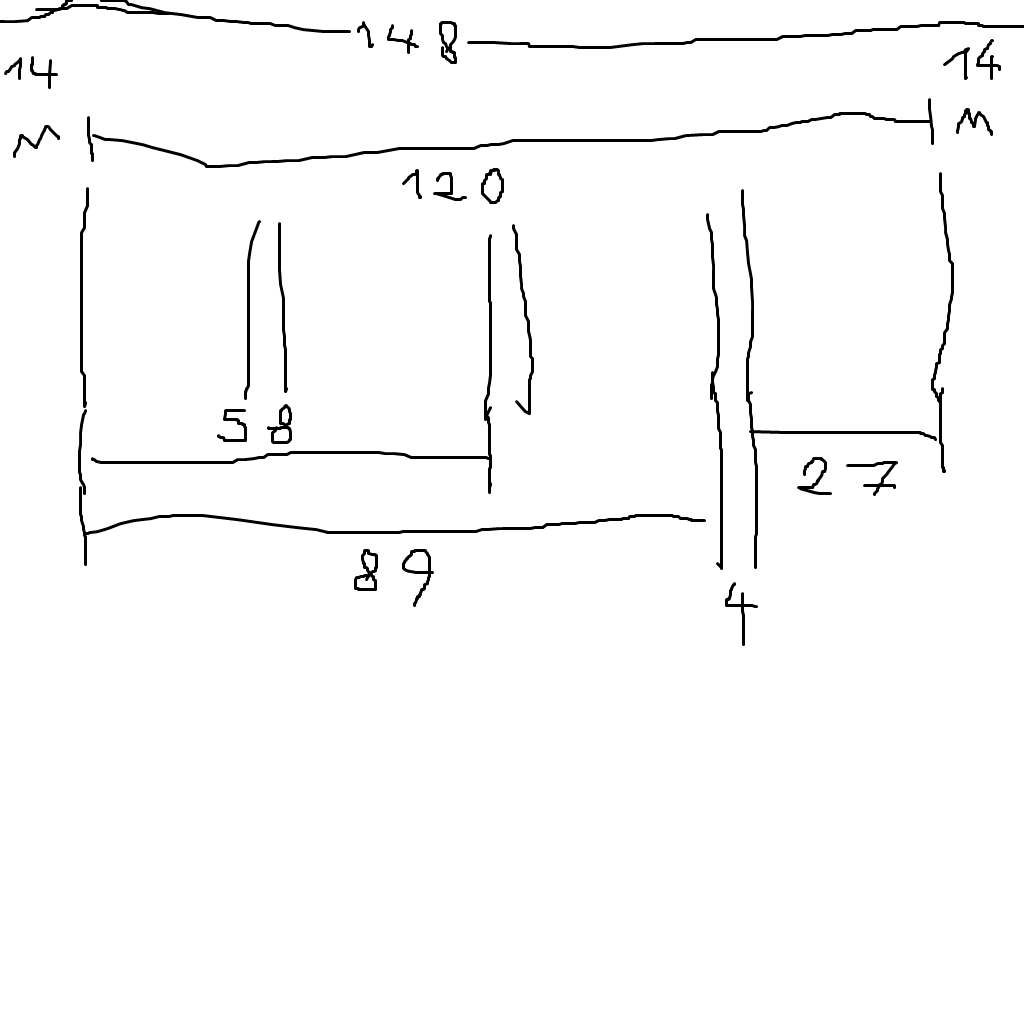 148
14 14
M M
120
58
27
89
4